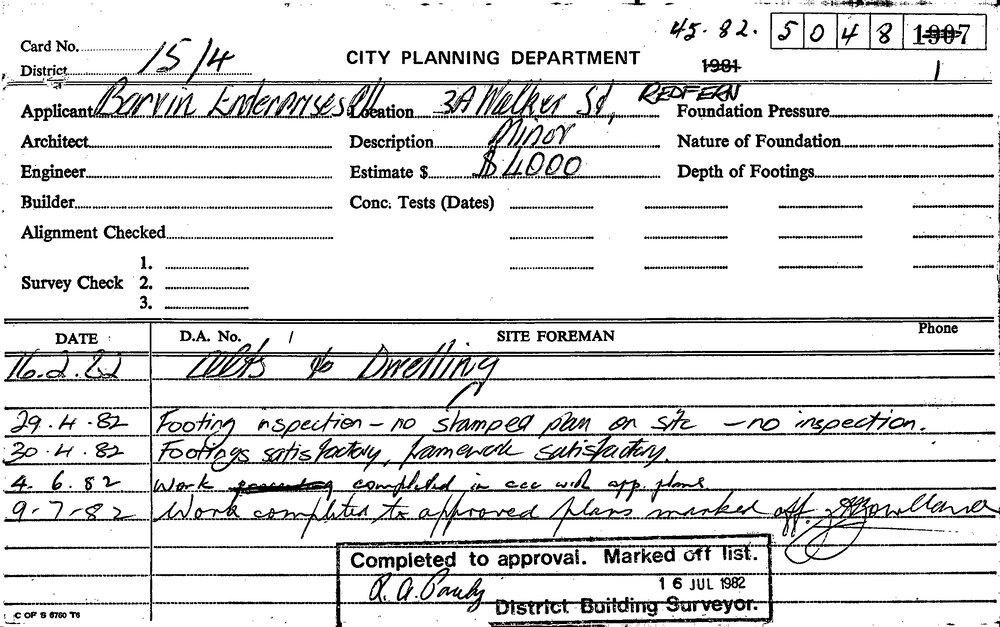 45.82. 5048 1907
Card No. 15/4 CITY PLANNING DEPARTMENT 1981 1
District
Applicant Barvin Enterprises P/L Location 3A Walker St, REDFERN Foundation Pressure
Architect Description Minor Nature of Foundation
Engineer Estimate $ $4000 Depth of Footings
Builder Conc. Tests (Dates)
Alignment Checked
1.
Survey Check 2.
3.
DATE D.A. No. / SITE FOREMAN Phone
16.2.82 Alts to Dwelling
29.4.82 Footing inspection - no stamped plan on site - no inspection.
30.4.82 Footings satisfactory, framework satisfactory.
4.6.82 Work completed in acc with app. plans
9-7-82 Work completed to approved plans marked off.
Completed to approval. Marked off list.
R.A. 16 JUL 1982
District Building Surveyor.
C OF S 6760 T6